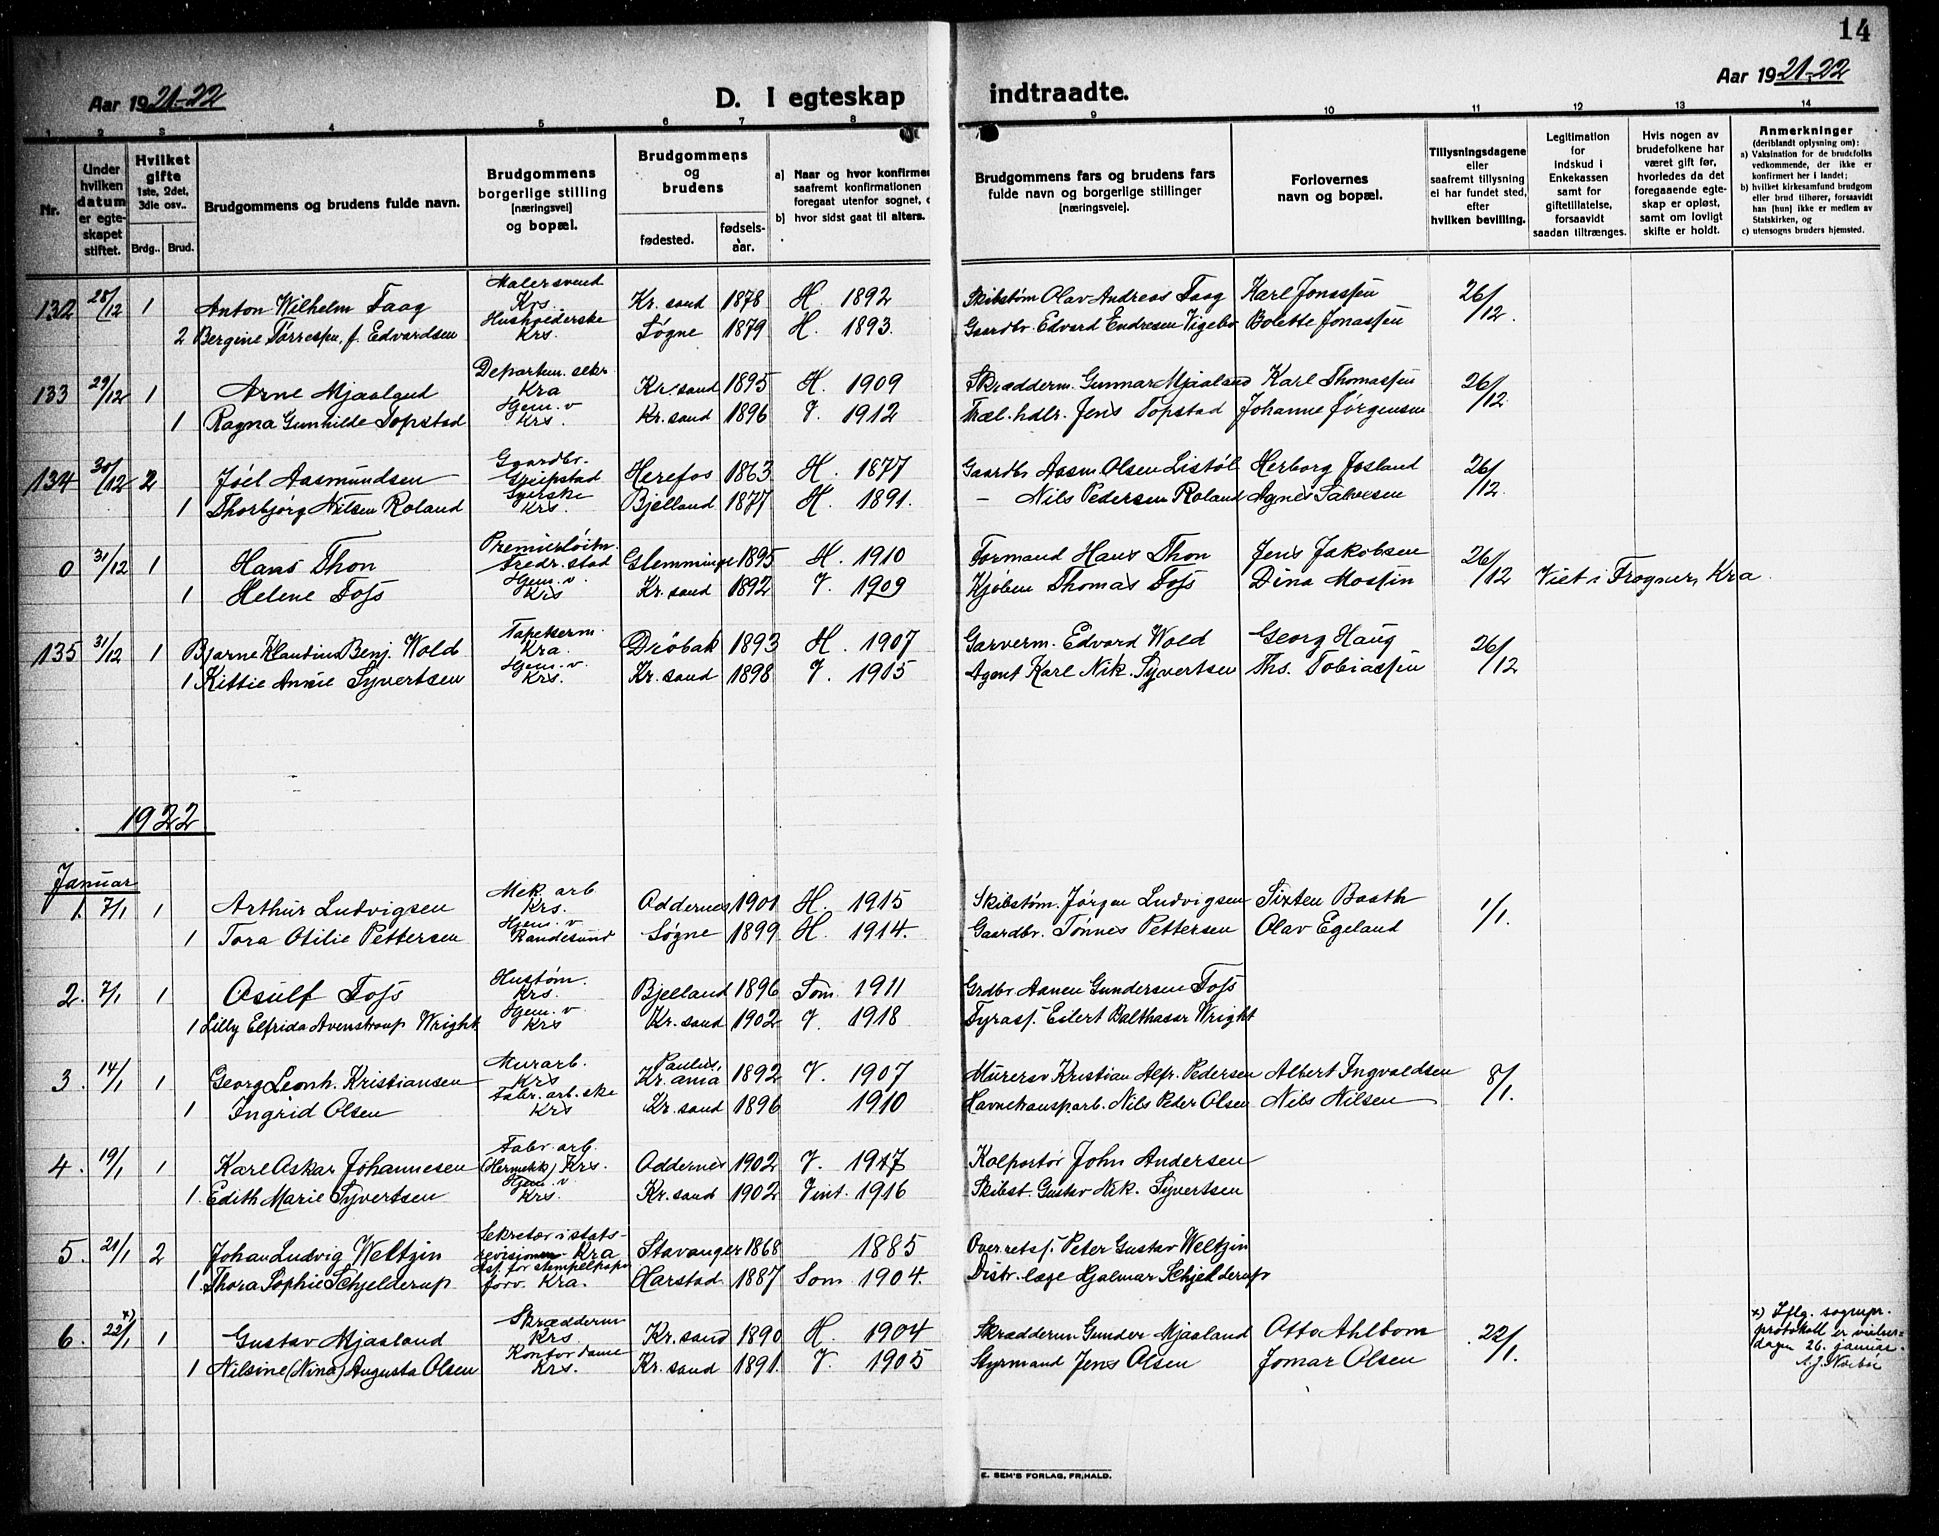 14
Aar 1921-22
D. I egteskap indtraadte.
Aar 1921-22
1 2 3 4 5 6 7 8 9 10 11 12 13 14
Nr.
Under hvilken datum er egteskapet stiftet.
Hvilket gifte 1ste, 2det, 3die osv..
Brdg.. Brud.
Brudgommens og brudens fulde navn.
Brudgommens borgerlige stilling [næringsvei] og bopæl.
Brudgommens og brudens
fødested. fødselsaar.
a) Naar og hvor konfirmer saafremt konfirmationen foregaat utenfor sognet,
b) hvor sidst gaat til alters.
Brudgommens fars og brudens fars fulde navn og borgerlige stillinger [næringsveie].
Forlovernes navn og bopæl.
Tillysningsdagene eller saafremt tillysning ei har fundet sted, efter hvilken bevilling.
Legitimation for indskud i Enkekassen samt for giftetillatelse, forsaavidt saadan tiltrænges.
Hvis nogen av brudefolkene har været gift før, hvorledes da det foregaaende egteskap er opløst, samt om lovligt skifte er holdt.
Anmerkninger (deriblandt oplysning om):
a) Vaksination for de brudefolks vedkommende, der ikke er konfirmert her i landet;
b) hvilket kirkesamfund brudgom eller brud tilhører, forsaavidt han [hun] ikke er medlem av Statskirken, og
c) utensogns bruders hjemsted.
132 28/12 1 Anton Wilhelm Faag Malersvend Krs. Kr.sand 1878 H. 1892 Skibstøm Olav Andreas Faag Karl Jonassen 26/12
2 Bergine Tørressen, f. Edvardsen Husholderske Krs. Søgne 1879 H. 1893. Gaardbr. Edvard Endresen Vigebo Bolette Jonassen
133 29/12 1 Arne Mjaaland Departem. sekr. Kra Kr.sand 1895 H. 1909 Skrædderm. Gunnar Mjaaland Karl Thomassen 26/12
1 Ragna Gunhilde Topstad Hjem. v Krs. Kr.sand 1896 V. 1912 Træl. hdlr. Jens Topstad Johanne Jørgensen
134 30/12 2 Joel Aasmundsen Gaardbr. Herefos 1863 H. 1877 Gaardbr Aasm. Olsen Listøl Herborg Josland 26/12
1 Thorbjørg Nilsen Roland Syerske Krs. Bjelland 1877 H. 1891. – Nils Pedersen Roland Agnes Salvesen
0 31/12 1 Hans Thon Premierløitn. Fredr.stad Glemminge 1895 H. 1910 Formand Hans Thon Jens Jakobsen 26/12 Viet i Frogner, Kra.
1 Helene Foss Hjem. v. Krs Kr.sand 1892 V. 1909 Kjøbm Thomas Foss Dina Mossin
135 31/12 1 Bjarne Klaudius Benj. Wold Tapetserm. Kra. Drøbak 1893 H. 1907 Garverm. Edvard Wold Georg Haug 26/12
1 Kittie Annie Syvertsen Hjem. v. Krs. Kr.sand 1898 V. 1915 Agent Karl Nik. Syvertsen Ths. Tobiassen
1922
Januar
1. 7/1 1 Arthur Ludvigsen Mek. arb Krs. Oddernes 1901 H. 1915 Skibstøm. Jørgen Ludvigsen Sixten Baath 1/1.
1 Tora Otilie Pettersen Hjem. v Randesund Søgne 1899 H. 1914. Gaardbr. Tønnes Pettersen Olav Egeland
2. 7/1 1 Osulf Foss Hustøm. Krs. Bjelland 1896 Som 1911 Grdbr Aanen Gundersen Foss
1 Lilly Elfrida Avenstroup Wright Hjem. v Krs Kr.sand 1902 V. 1918 Fyrass. Eilert Balthasar Wright
3. 14/1 1 Georg Leonh. Kristiansen Murarb. Krs Paulus, Kr.ania 1892 V. 1907 Murersv Kristian Alfr. Pedersen Albert Ingvaldsen 8/1.
1 Ingrid Olsen Fabr. arb.ske Krs Kr.sand 1896 1910 Havnetransparb. Nils Peder Olsen Nils Nilsen
4. 19/1 1 Karl Oskar Johannesen Fabr arb. (Hermetikk) Krs. Oddernes 1902 V. 1917 Kolportør John Andersen
1 Edith Marie Syvertsen Hjem. v. Krs. Kr.sand 1902 Vint. 1916 Skibst. Gustav Nik. Syvertsen
5. 21/1 2 Johan Ludvig Weltzin Sekretær i stats-revisionen Kra Stavanger 1868 1885 Overretss. Peter Gustav Weltzin
1 Thora Sophie Schjelderup Ass. for stempelpapirforv. Kra. Harstad 1887 Som 1904. Distr. læge Hjalmar Schjelderup
6. 22/1 x) 1 Gustav Mjaaland Skrædderm Krs. Kr.sand 1890 H. 1904 Skrædderm Gunder Mjaaland Otto Ahlbom 22/1. x) Iflg. sognepr. protokoll er vielsesdagen 26. januar.
1 Nilsine (Nina) Augusta Olsen Kontordame Krs. Kr.sand 1891. V. 1905 Styrmand Jens Olsen Jomar Olsen
E. SEM'S FORLAG, FR.HALD.